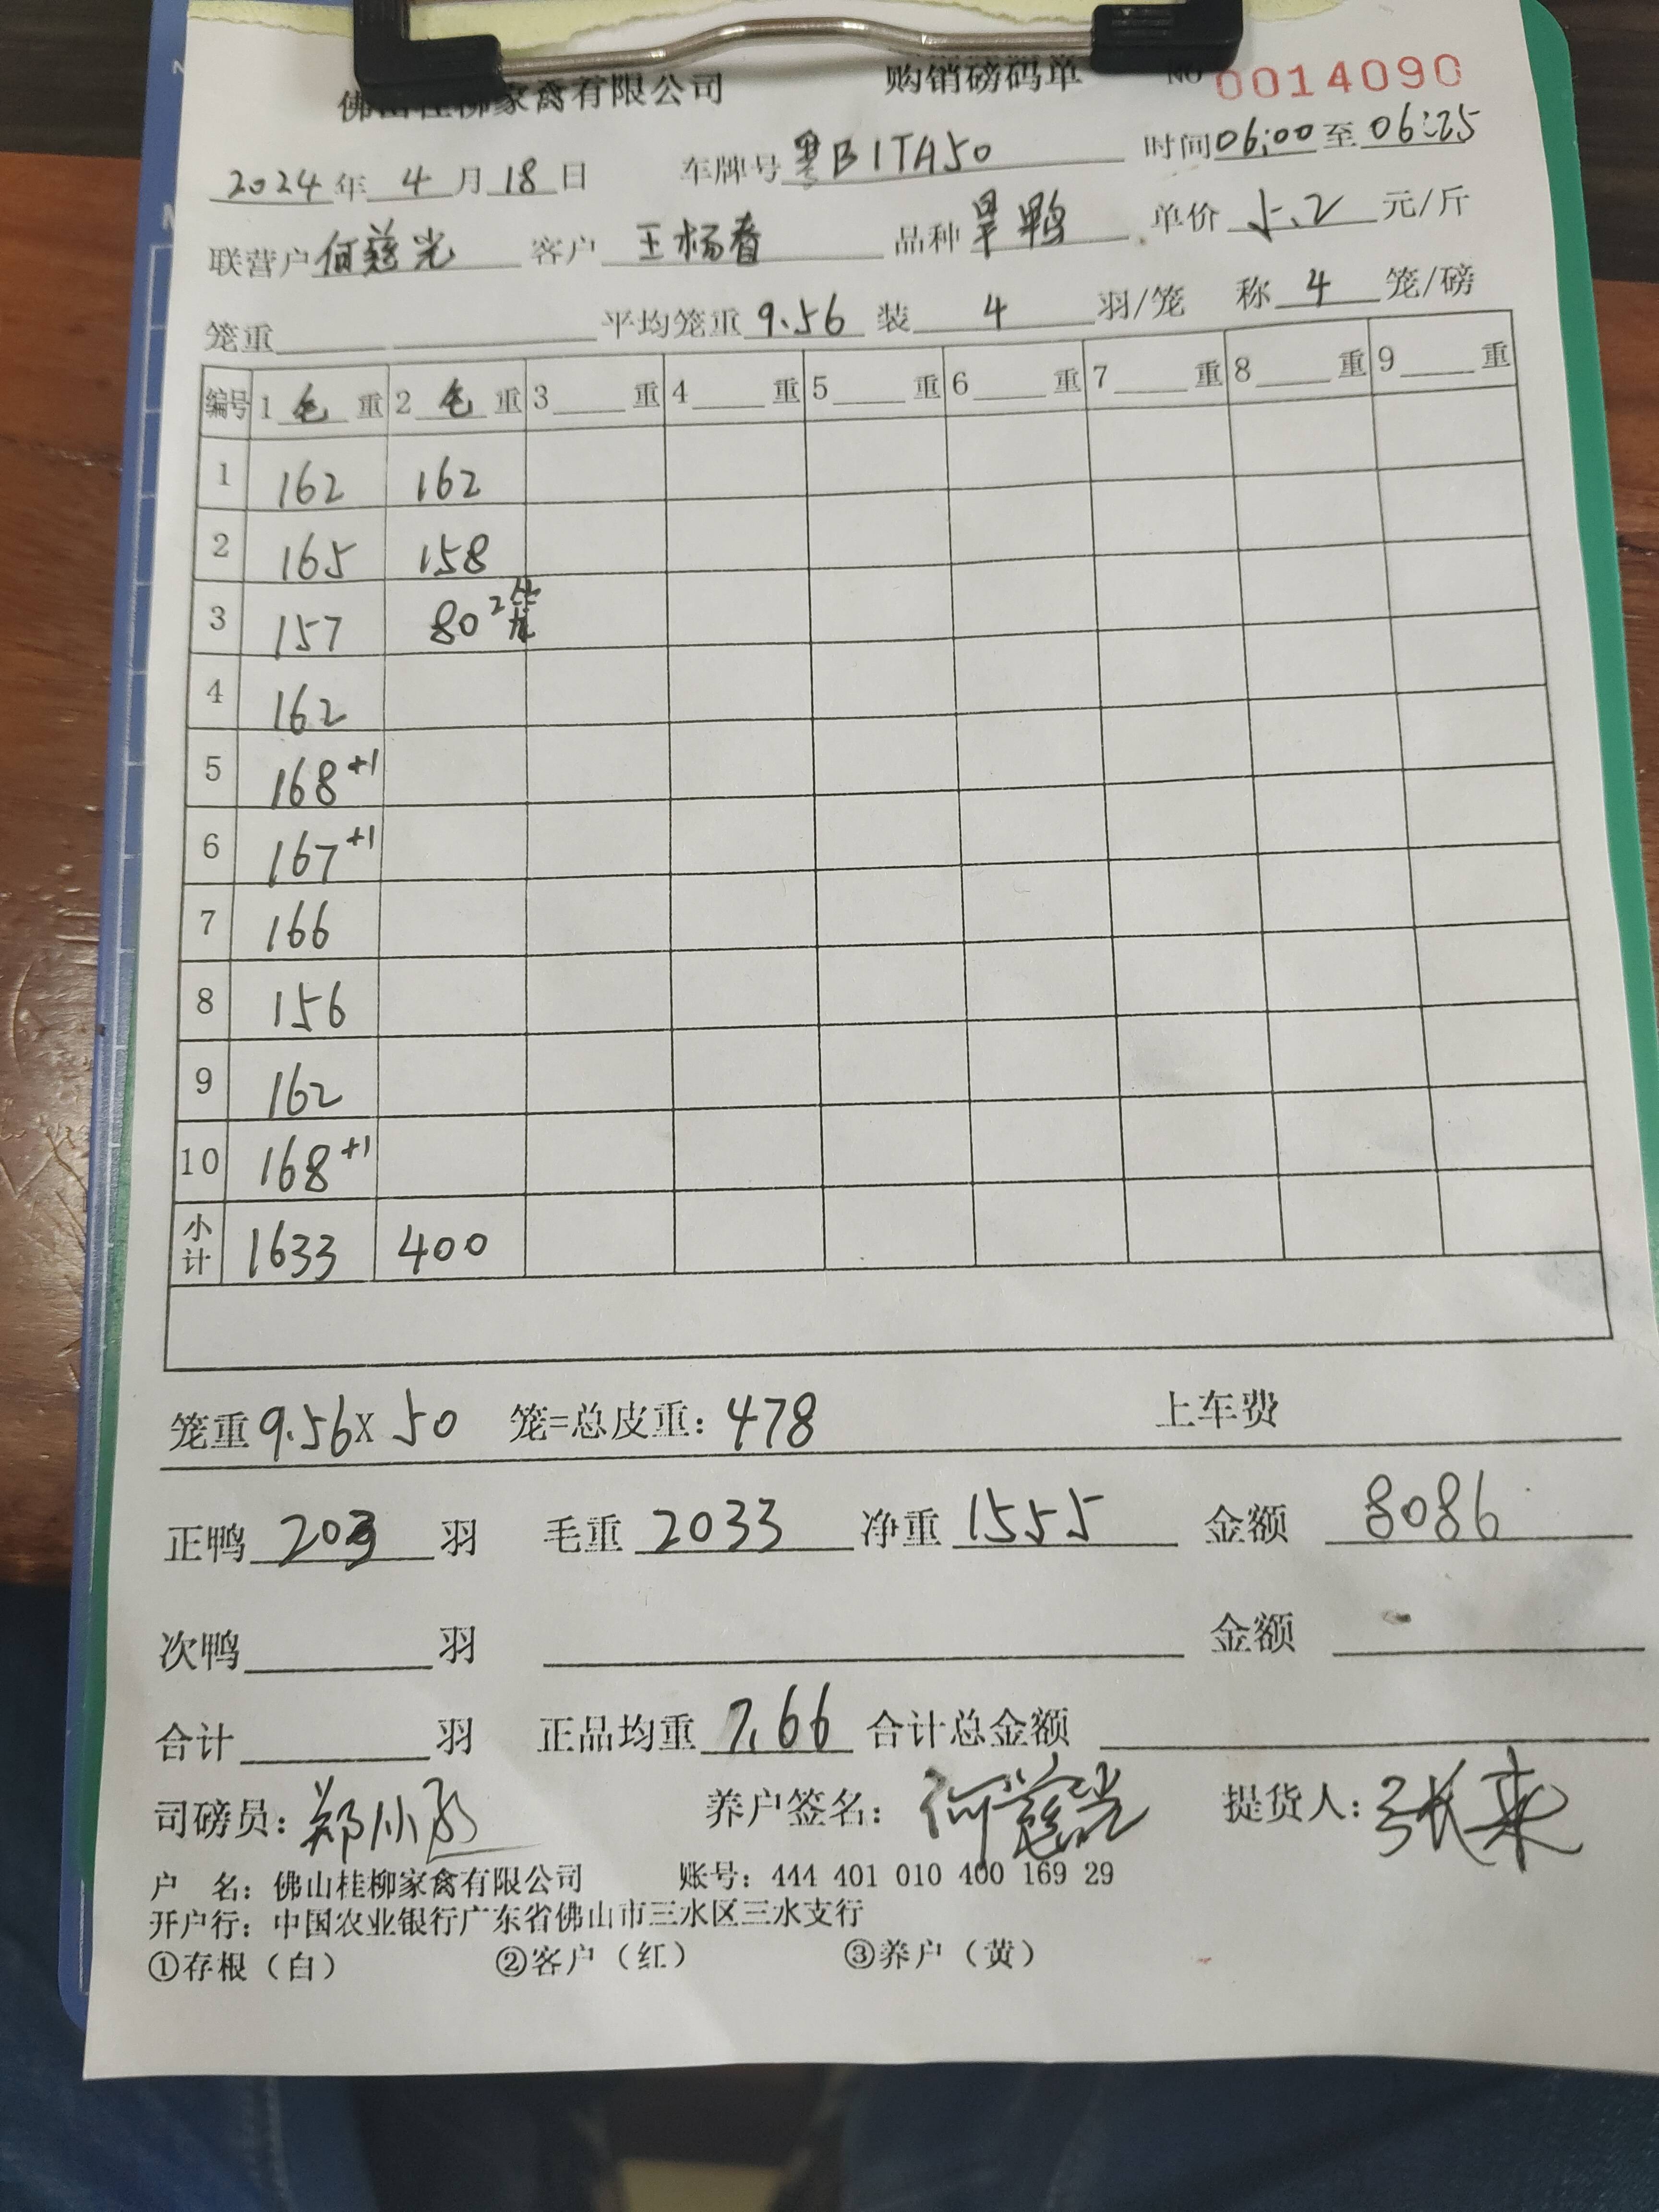 佛山桂柳家禽有限公司 购销磅码单 NO 0014090
2024年 4月18日 车牌号 粤B1TA50 时间06:00至06:25
联营户何慈光 客户 王杨春 品种旱鸭 单价 5.2 元/斤
笼重 平均笼重9.56 装 4 羽/笼 称 4 笼/磅
编号 1毛重 2毛重 3重 4重 5重 6重 7重 8重 9重
1 162 162
2 165 158
3 157 80 2笼
4 162
5 168+1
6 167+1
7 166
8 156
9 162
10 168+1
小计 1633 400
笼重9.56X 50 笼=总皮重: 478 上车费
正鸭 203 羽 毛重 2033 净重 1555 金额 8086
次鸭 羽 金额
合计 羽 正品均重 7.66 合计总金额
司磅员: 郑小 养户签名: 何慈光 提货人: 张来
户 名: 佛山桂柳家禽有限公司 账号: 444 401 010 400 169 29
开户行: 中国农业银行广东省佛山市三水区三水支行
①存根（白） ②客户（红） ③养户（黄）